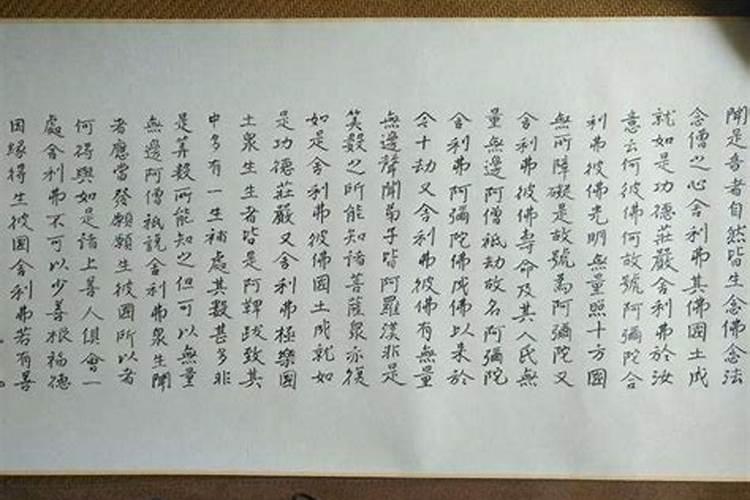 聞是音者自然皆生念佛念法
念僧之心舍利弗其佛國土成
就如是功德莊嚴舍利弗於汝
意云何彼佛何故號阿彌陀舍
利弗彼佛光明無量照十方國
無所障礙是故號為阿彌陀又
舍利弗彼佛壽命及其人民無
量無邊阿僧祇劫故名阿彌陀
舍利弗阿彌陀佛成佛以來於
今十劫又舍利弗彼佛有無量
無邊聲聞弟子皆阿羅漢非是
筭數之所能知諸菩薩衆亦復
如是舍利弗彼佛國土成就如
是功德莊嚴又舍利弗極樂國
土衆生生者皆是阿鞞跋致其
中多有一生補處其數甚多非
是筭數所能知之但可以無量
無邊阿僧祇說舍利弗衆生聞
者應當發願願生彼國所以者
何得與如是諸上善人俱會一
處舍利弗不可以少善根福德
因緣得生彼國舍利弗若有善